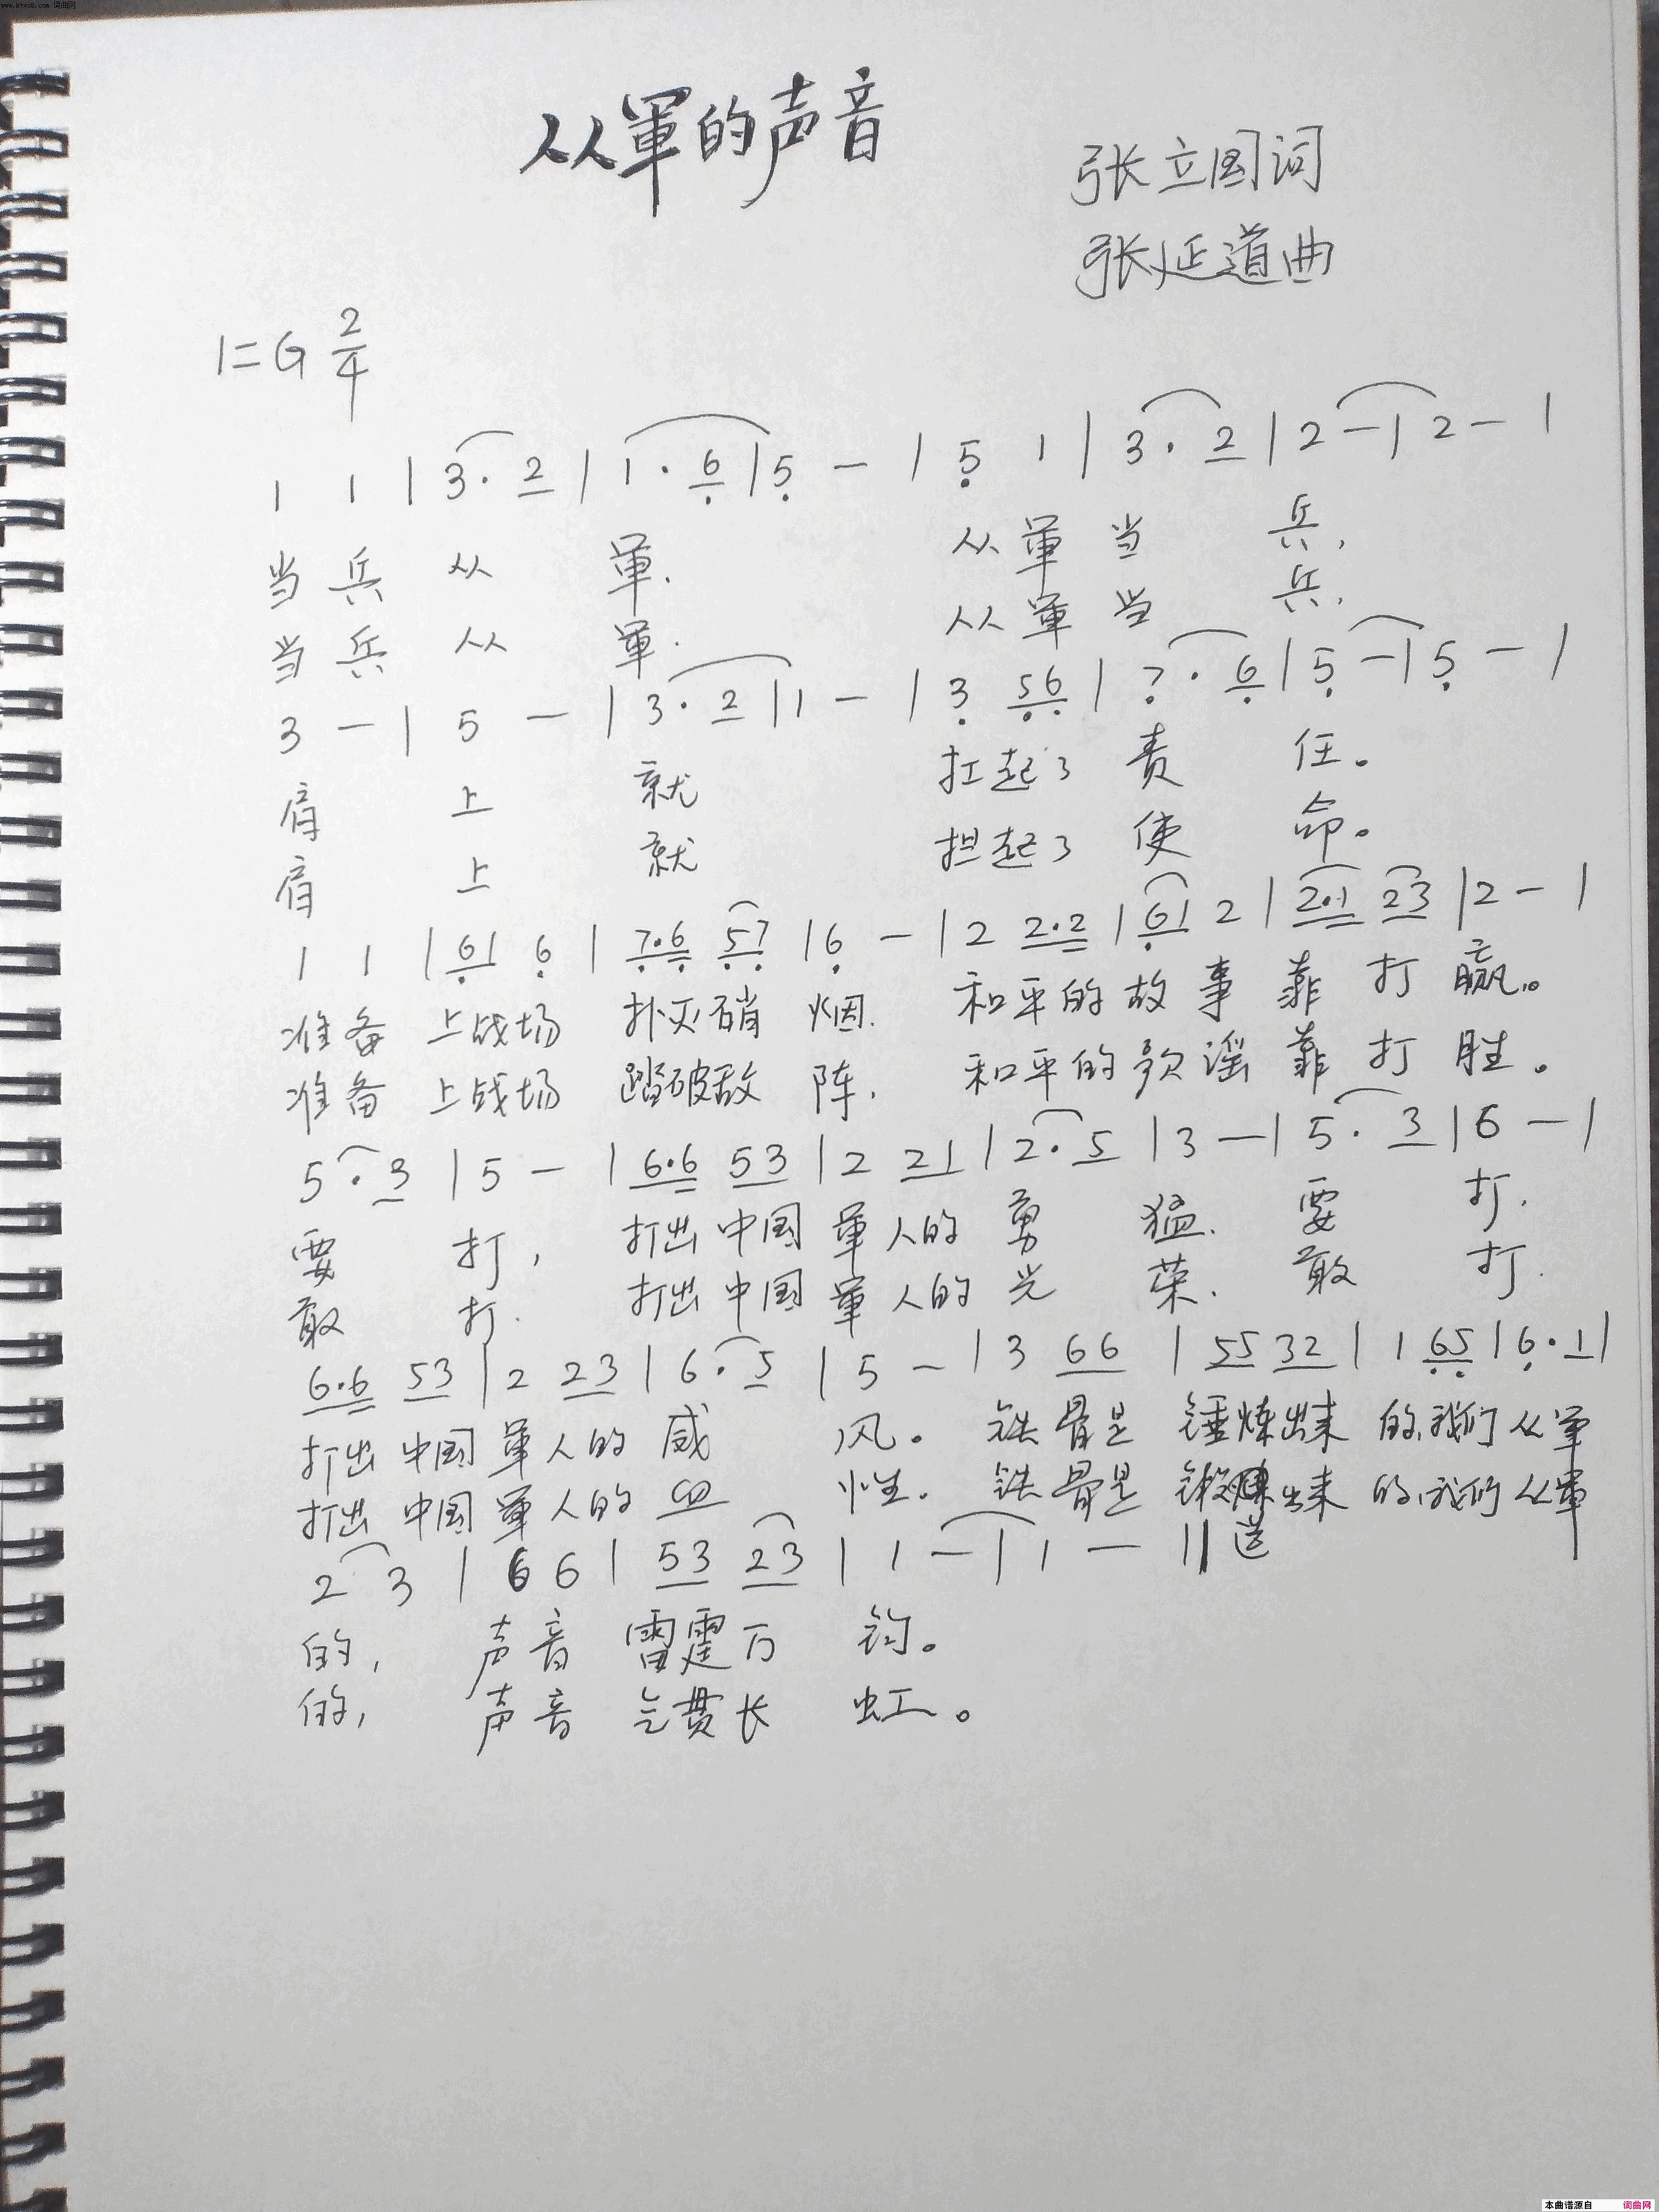 www.ktvc8.com 词曲网
从軍的声音
张立国词
张延道曲
1=G 2/4
1 1 | 3· 2 | 1· 6 | 5 - | 5 1 | 3· 2 | 2 - | 2 - |
当兵从軍. 从軍当兵,
当兵从軍. 从軍当兵,
3 - | 5 - | 3· 2 | 1 - | 3 56 | 7· 6 | 5 - | 5 - |
肩上就扛起了责任。
肩上就担起了使命。
1 1 | 61 6 | 7·6 57 | 6 - | 2 2·2 | 61 2 | 2·1 23 | 2 - |
准备上战场扑灭硝烟. 和平的故事靠打赢。
准备上战场踏破敌阵. 和平的歌谣靠打胜。
5· 3 | 5 - | 6·6 53 | 2 21 | 2· 5 | 3 - | 5· 3 | 6 - |
要打, 打出中国軍人的勇猛. 要打.
敢打. 打出中国軍人的光荣. 敢打.
6·6 53 | 2 23 | 6· 5 | 5 - | 3 66 | 55 32 | 1 65 | 6· 1 |
打出中国軍人的威风。铁骨是锤炼出来的,我们从军
打出中国軍人的血性. 铁骨是锻炼出来的,我们从軍
2 3 | 6 6 | 53 23 | 1 - | 1 - ||
的, 声音雷霆万钧。
的, 声音气贯长虹。
本曲谱源自 词曲网